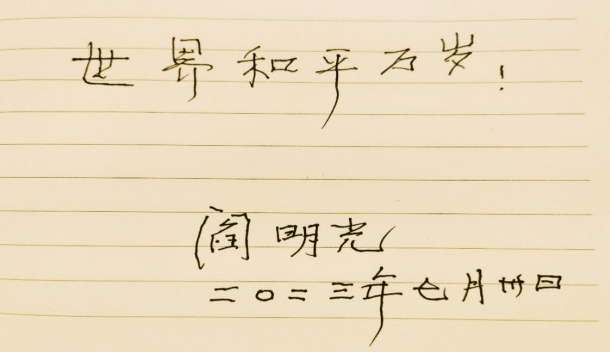 世界和平万岁！
阎明光
二〇二三年七月卅日